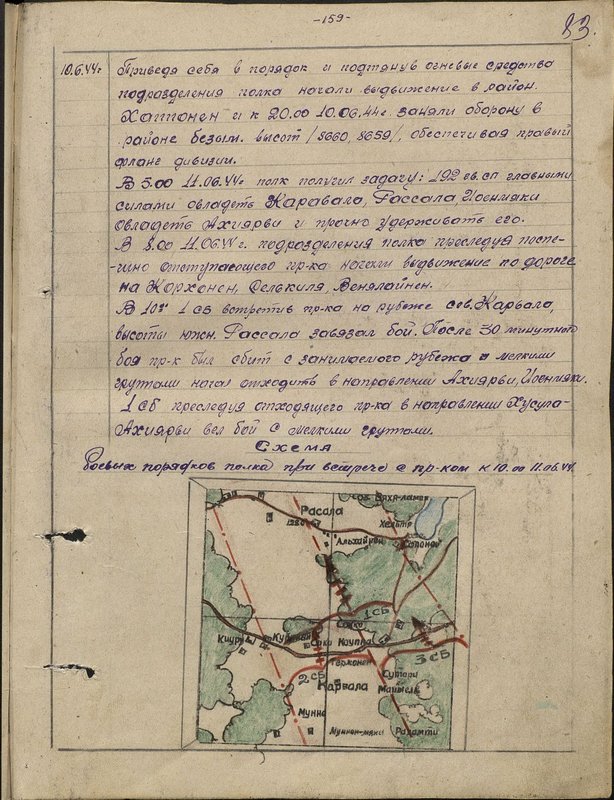 -159-
83.
10.6.44г Приведя себя в порядок и подтянув огневые средства
подразделения полка начали выдвижение в район.
Хаттонен и к 20.00 10.06.44г. заняли оборону в
районе безым. высот /8660, 8659/, обеспечивая правый
фланг дивизии.
В 5.00 11.06.44г полк получил задачу: 192 гв.сп главными
силами овладеть Каравала, Рассала, Иоенмяки
овладеть Ахиярви и прочно удерживать его.
В 8.00 11.06.44г. подразделения полка преследуя поспе-
-шно отступающего пр-ка начали выдвижение по дороге
на Корхонен, Селькиля, Венялайнен.
В 1 сб встретив пр-ка на рубеже сев. Карвала,
высоты южн. Рассала завязал бой. После 30 минутного
боя пр-к был сбит с занимаемого рубежа и мелкими
группами начал отходить в направлении Ахиярви, Иоенмяки.
1 сб преследуя отходящего пр-ка в направлении Хусула-
Ахиярви вел бой с мелкими группами.
Схема
боевых порядков полка при встрече с пр-ком к 10.00 11.06.44.
Расала
Альхайнен
1сб
Кауппа
3сб
2сб
Карвала
Сутари
Мунне